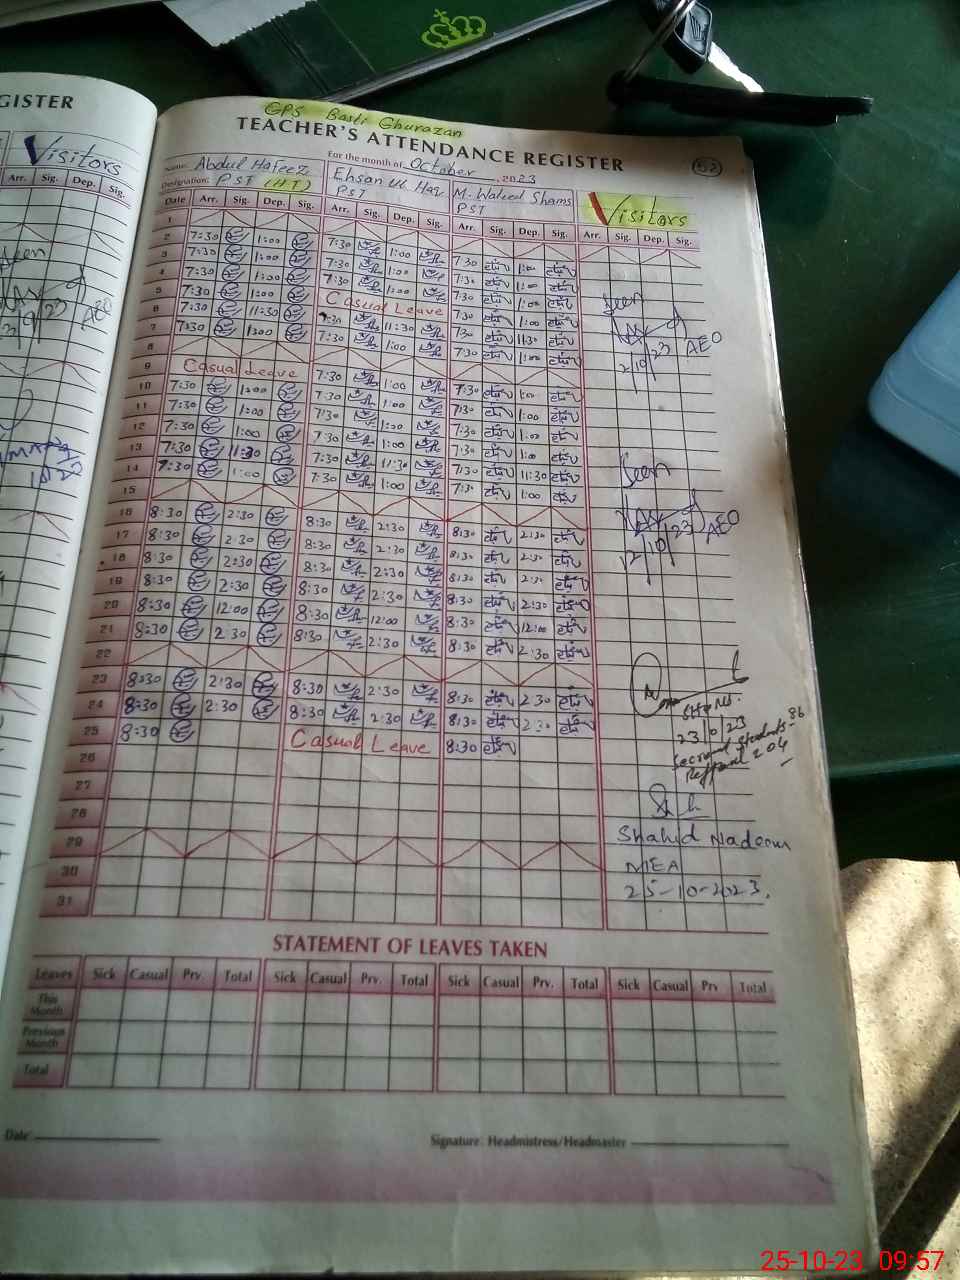 GISTER
Visitors
Arr. Sig. Dep. Sig.
Seen
AEO
GPS Basti Ghurazan
TEACHER'S ATTENDANCE REGISTER
52
For the month of October, 2023
Name: Abdul Hafeez
Designation: PST (HT)
Ehsan ul Haq
PST
M. Waleed Shams
PST
Visitors
Date Arr. Sig. Dep. Sig. Arr. Sig. Dep. Sig. Arr. Sig. Dep. Sig. Arr. Sig. Dep. Sig.
1
2 7:30 1:00 7:30 1:00 7:30 1:00
3 7:30 1:00 7:30 1:00 7:30 1:00
4 7:30 1:00 7:30 1:00 7:30 1:00
5 7:30 1:00 Casual Leave 7:30 1:00
6 7:30 11:30 7:30 11:30 7:30 11:30
7 7:30 1:00 7:30 1:00 7:30 1:00
8
9 Casual Leave 7:30 1:00 7:30 1:00
10 7:30 1:00 7:30 1:00 7:30 1:00
11 7:30 1:00 7:30 1:00 7:30 1:00
12 7:30 1:00 7:30 1:00 7:30 1:00
13 7:30 11:30 7:30 11:30 7:30 11:30
14 7:30 1:00 7:30 1:00 7:30 1:00
15
16 8:30 2:30 8:30 2:30 8:30 2:30
17 8:30 2:30 8:30 2:30 8:30 2:30
18 8:30 2:30 8:30 2:30 8:30 2:30
19 8:30 2:30 8:30 2:30 8:30 2:30
20 8:30 12:00 8:30 12:00 8:30 12:00
21 8:30 2:30 8:30 2:30 8:30 2:30
22
23 8:30 2:30 8:30 2:30 8:30 2:30
24 8:30 2:30 8:30 2:30 8:30 2:30
25 8:30 Casual Leave 8:30
26
27
28
29
30
31
Seen
AEO
2/10/23
Seen
AEO
12/10/23
23/10/23
Students-86
204
Shahid Nadeem
MEA
25-10-2023.
STATEMENT OF LEAVES TAKEN
Leaves Sick Casual Prv. Total Sick Casual Prv. Total Sick Casual Prv. Total Sick Casual Prv Total
This Month
Previous Month
Total
Date
Signature: Headmistress/Headmaster
25-10-23 09:57